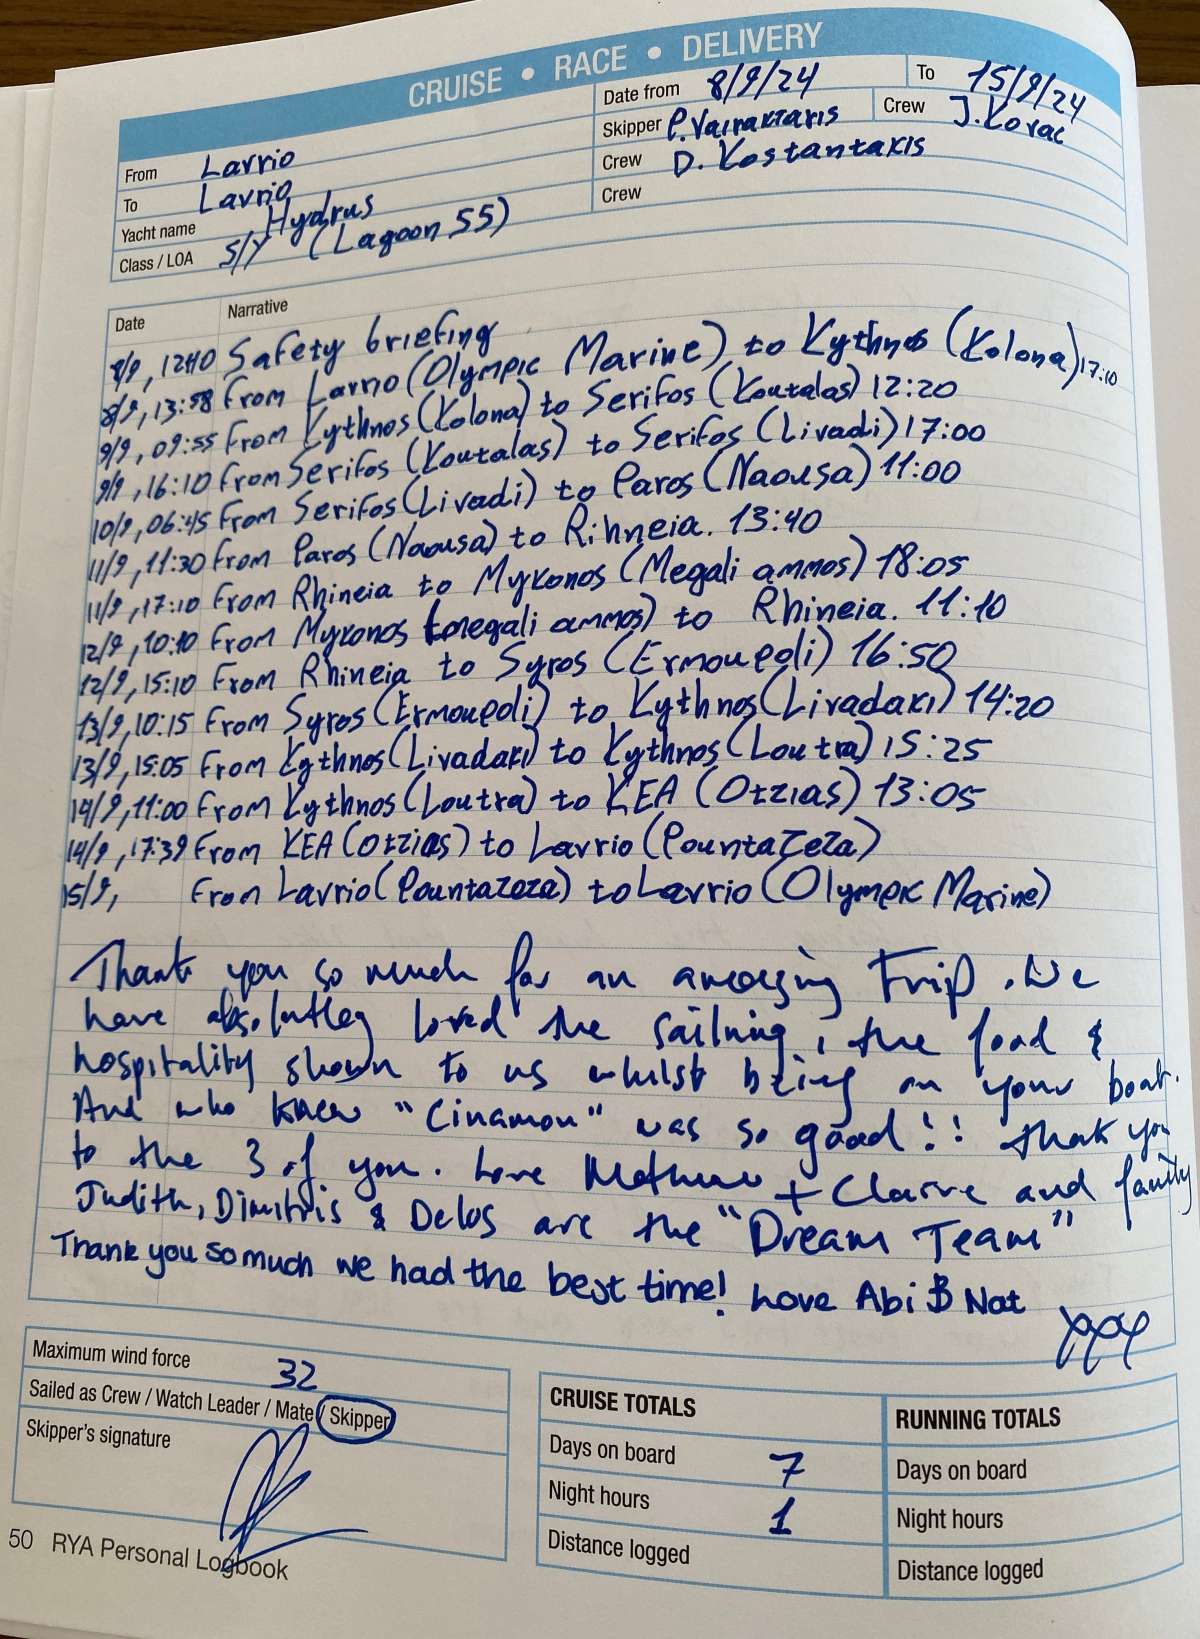 CRUISE • RACE • DELIVERY
Date from 8/9/24 To 15/9/24
From Lavrio
Skipper P.Vairaktaris Crew J.Kovac
To Lavrio
Crew D. Kostantakis
Yacht name Hydrus
Crew
Class / LOA S/Y (Lagoon 55)
Date Narrative
8/9, 1240 Safety briefing
8/9, 13:58 From Lavrio (Olympic Marine) to Kythnos (Kolona) 17:10
9/9, 09:55 From Kythnos (Kolona) to Serifos (Koutalas) 12:20
9/9, 16:10 From Serifos (Koutalas) to Serifos (Livadi) 17:00
10/9, 06:45 From Serifos (Livadi) to Paros (Naousa) 11:00
11/9, 11:30 From Paros (Naousa) to Rihneia. 13:40
11/9, 17:10 From Rhineia to Mykonos (Megali ammos) 18:05
12/9, 10:10 From Mykonos (megali ammos) to Rhineia. 11:10
12/9, 15:10 From Rhineia to Syros (Ermoupoli) 16:50
13/9, 10:15 From Syros (Ermoupoli) to Kythnos (Livadaki) 14:20
13/9, 15:05 From Kythnos (Livadaki) to Kythnos (Loutra) 15:25
14/9, 11:00 From Kythnos (Loutra) to KEA (Otzias) 13:05
14/9, 17:39 From KEA (Otzias) to Lavrio (Pountazeza)
15/9, From Lavrio (Pountazeza) to Lavrio (Olympic Marine)
Thank you so much for an amazing trip. We
have absolutley loved the sailning, the food &
hospitality shown to us whilst being on your boat.
And who knew "Cinamon" was so good!! Thank you
to the 3 of you. Love Mathew + Claire and family
Judith, Dimitris & Delos are the "Dream Team"
Thank you so much we had the best time! Love Abi & Nat
xxx
Maximum wind force 32
Sailed as Crew / Watch Leader / Mate / Skipper
Skipper's signature
CRUISE TOTALS
Days on board 7
Night hours 1
Distance logged
RUNNING TOTALS
Days on board
Night hours
Distance logged
50 RYA Personal Logbook